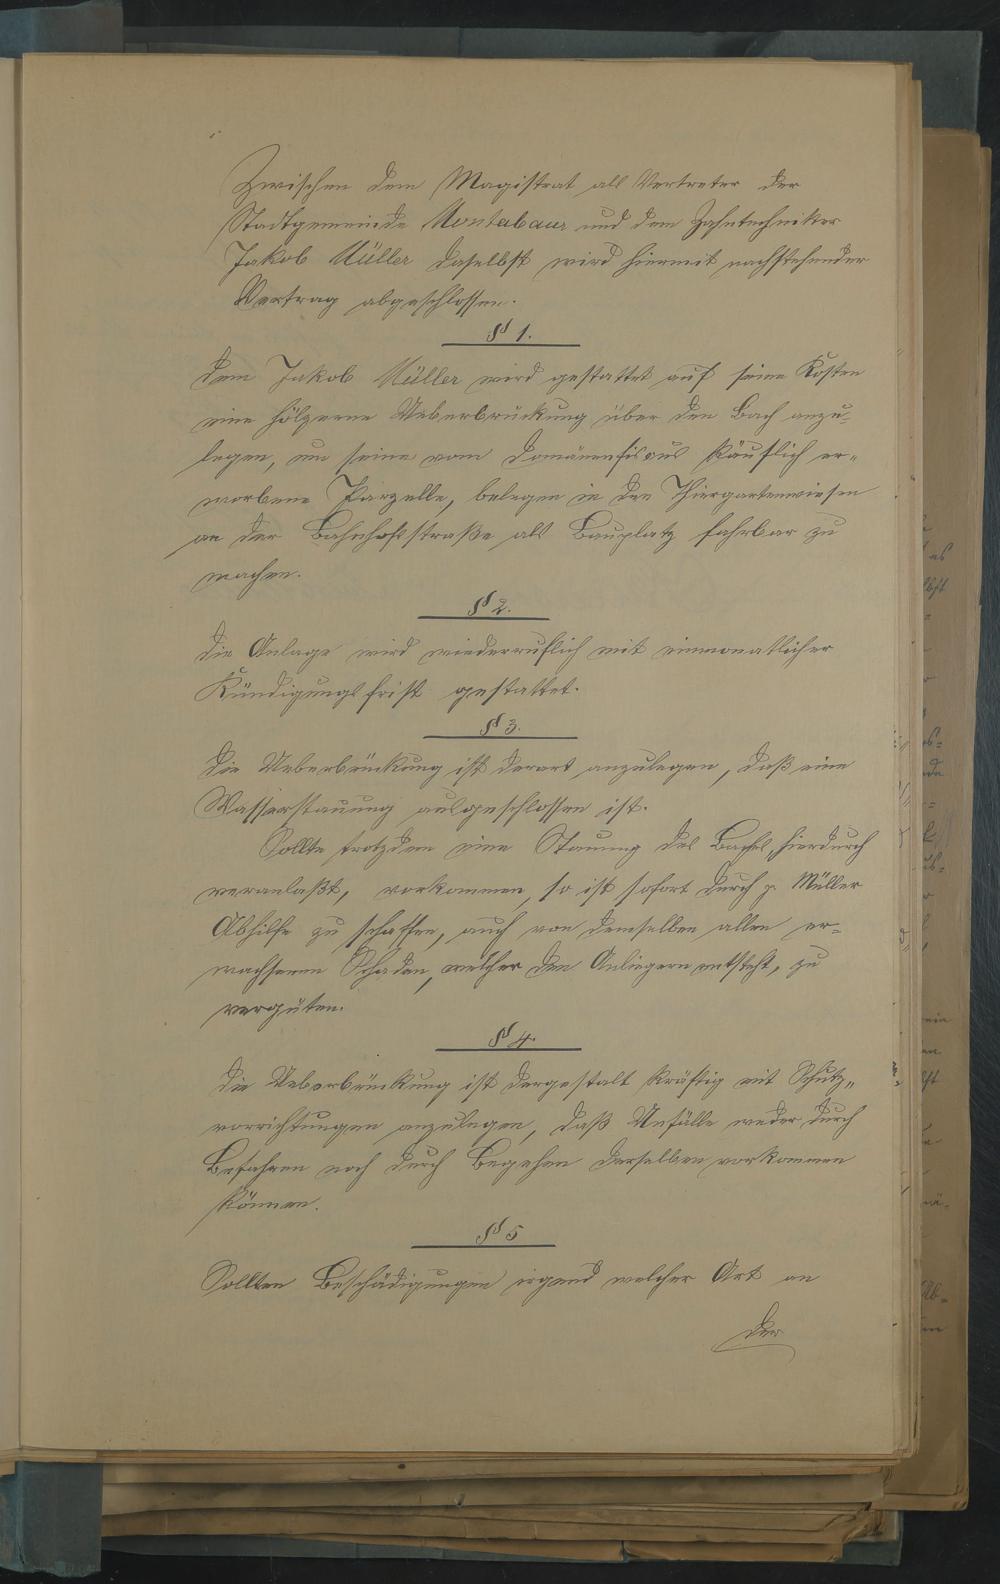 Zwischen dem Magistrat als Vertreter der
Stadtgemeinde Montabaur und dem Zahntechniker
Jakob Müller daselbst wird hiermit nachstehender
Vertrag abgeschlossen.
§ 1.
Dem Jakob Müller wird gestattet auf seine Kosten
eine hölzerne Ueberbrückung über den Bach anzu-
legen, um seine vom Domänenfiskus käuflich er-
worbene Parzelle, belegen in den Thiergartenwiesen
an der Bahnhofsstraße als Bauplatz fahrbar zu
machen.
§ 2.
Die Anlage wird wiederruflich mit einmonatlicher
Kündigungsfrist gestattet.
§ 3.
Die Ueberbrückung ist derart anzulegen, daß eine
Wasserstauung ausgeschlossen ist.
Sollte trotzdem eine Stauung des Baches, hierdurch
veranlaßt, vorkommen, so ist sofort durch p. Müller
Abhilfe zu schaffen, auch von demselben allen er-
wachsenen Schaden, welcher den Anliegern entsteht, zu
vergüten.
§ 4.
Die Ueberbrückung ist dergestalt kräftig mit Schutz-
vorrichtungen anzulegen, daß Unfälle weder durch
Befahren noch durch Begehen derselben vorkommen
können.
§ 5
Sollten Beschädigungen irgend welcher Art an
der